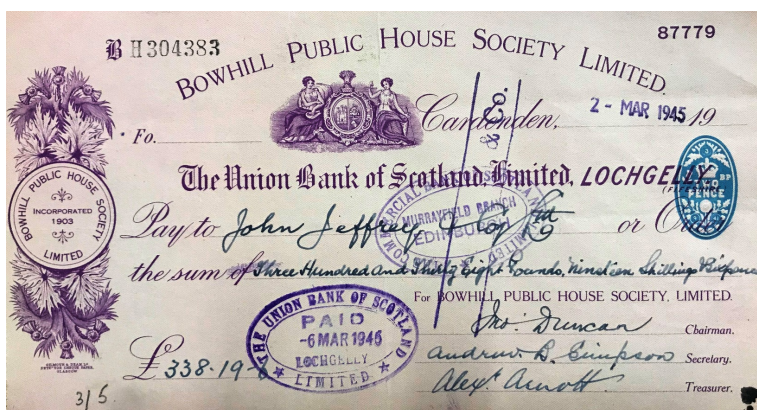 B H304383
87779
BOWHILL PUBLIC HOUSE SOCIETY LIMITED.
Cardenden, 2 - MAR 1945 19
Fo.
The Union Bank of Scotland, Limited, LOCHGELLY
TWO PENCE
BOWHILL PUBLIC HOUSE SOCIETY LIMITED
INCORPORATED 1903
Pay to John Jeffrey & Coy Ltd or Order
COMMERCIAL BANK OF SCOTLAND LIMITED
MURRAYFIELD BRANCH
EDINBURGH
the sum of Three Hundred and Thirty Eight Pounds, Nineteen Shillings
For BOWHILL PUBLIC HOUSE SOCIETY, LIMITED.
Jno. Duncan Chairman.
Andrew B. Simpson Secretary.
Alexr. Arnott Treasurer.
THE UNION BANK OF SCOTLAND LIMITED
PAID
-6 MAR 1945
LOCHGELLY
£338-19-
3/5